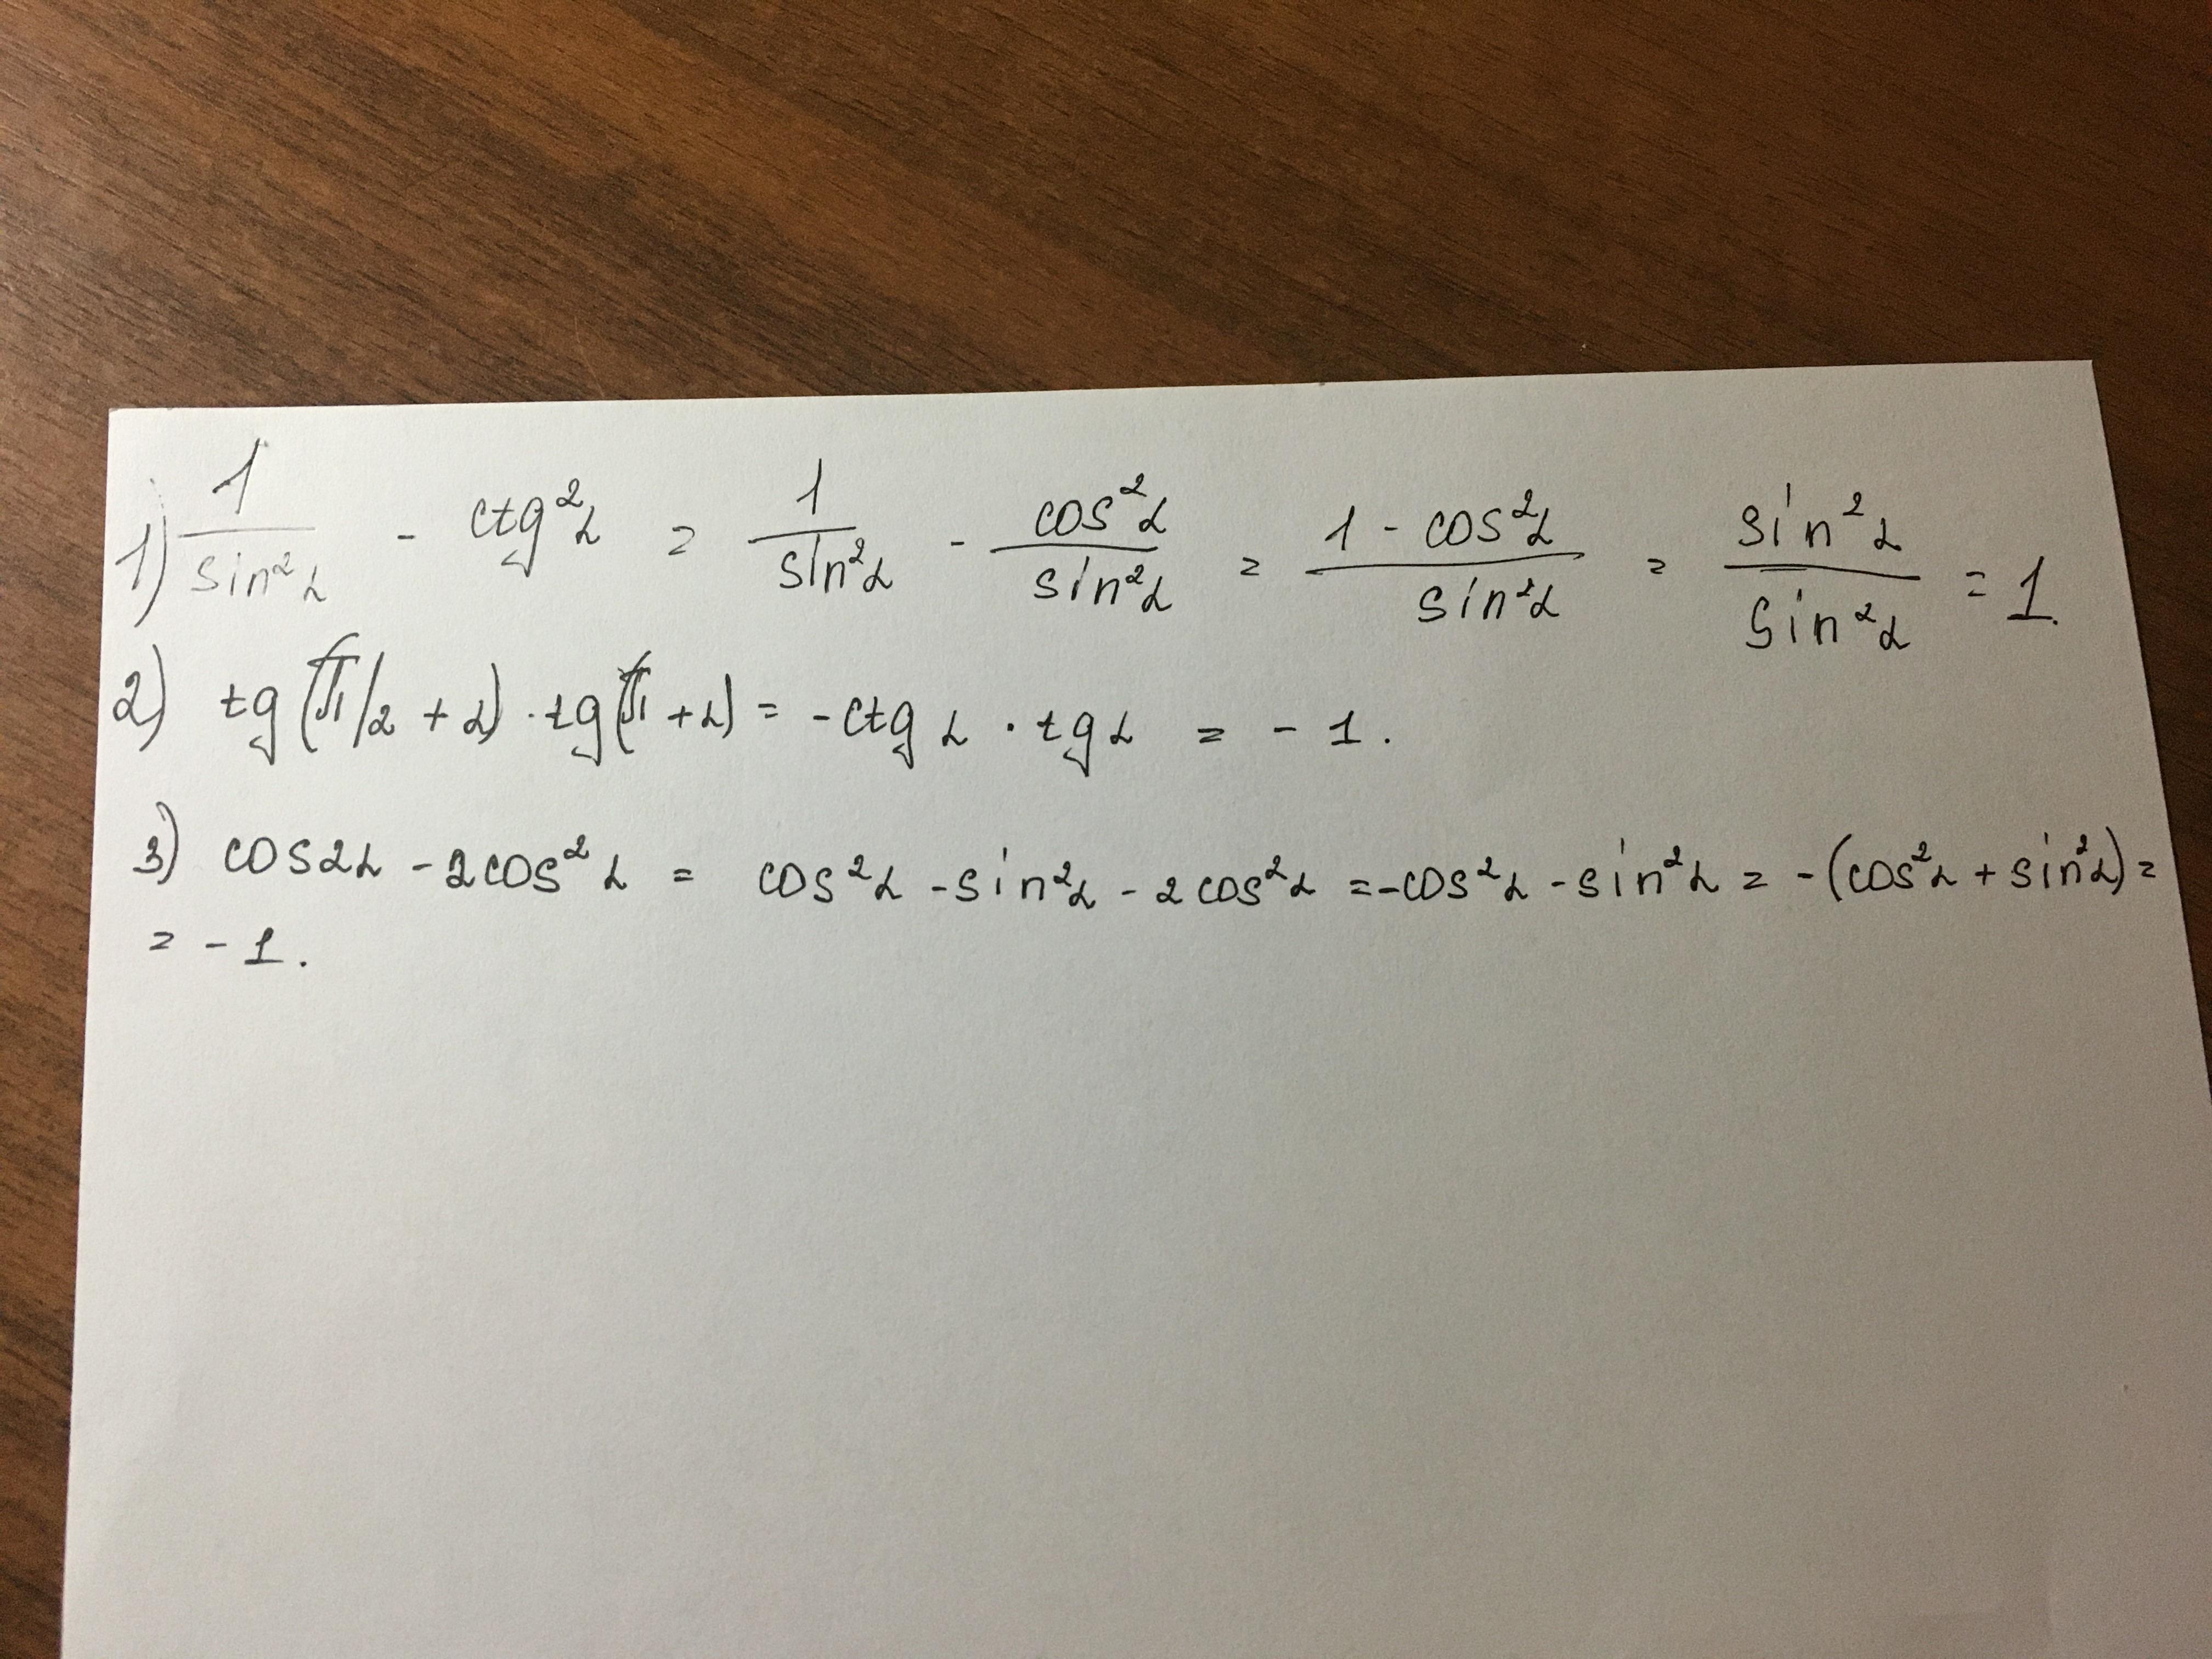 1) 1/sin²α - ctg²α = 1/sin²α - cos²α/sin²α = (1 - cos²α)/sin²α = sin²α/sin²α = 1.
2) tg(π/2 + α) · tg(π + α) = -ctg α · tg α = - 1.
3) cos2α - 2cos²α = cos²α - sin²α - 2cos²α = -cos²α - sin²α = -(cos²α + sin²α) =
= - 1.